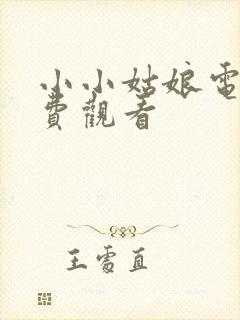 小小姑娘電
費觀看
王雪直